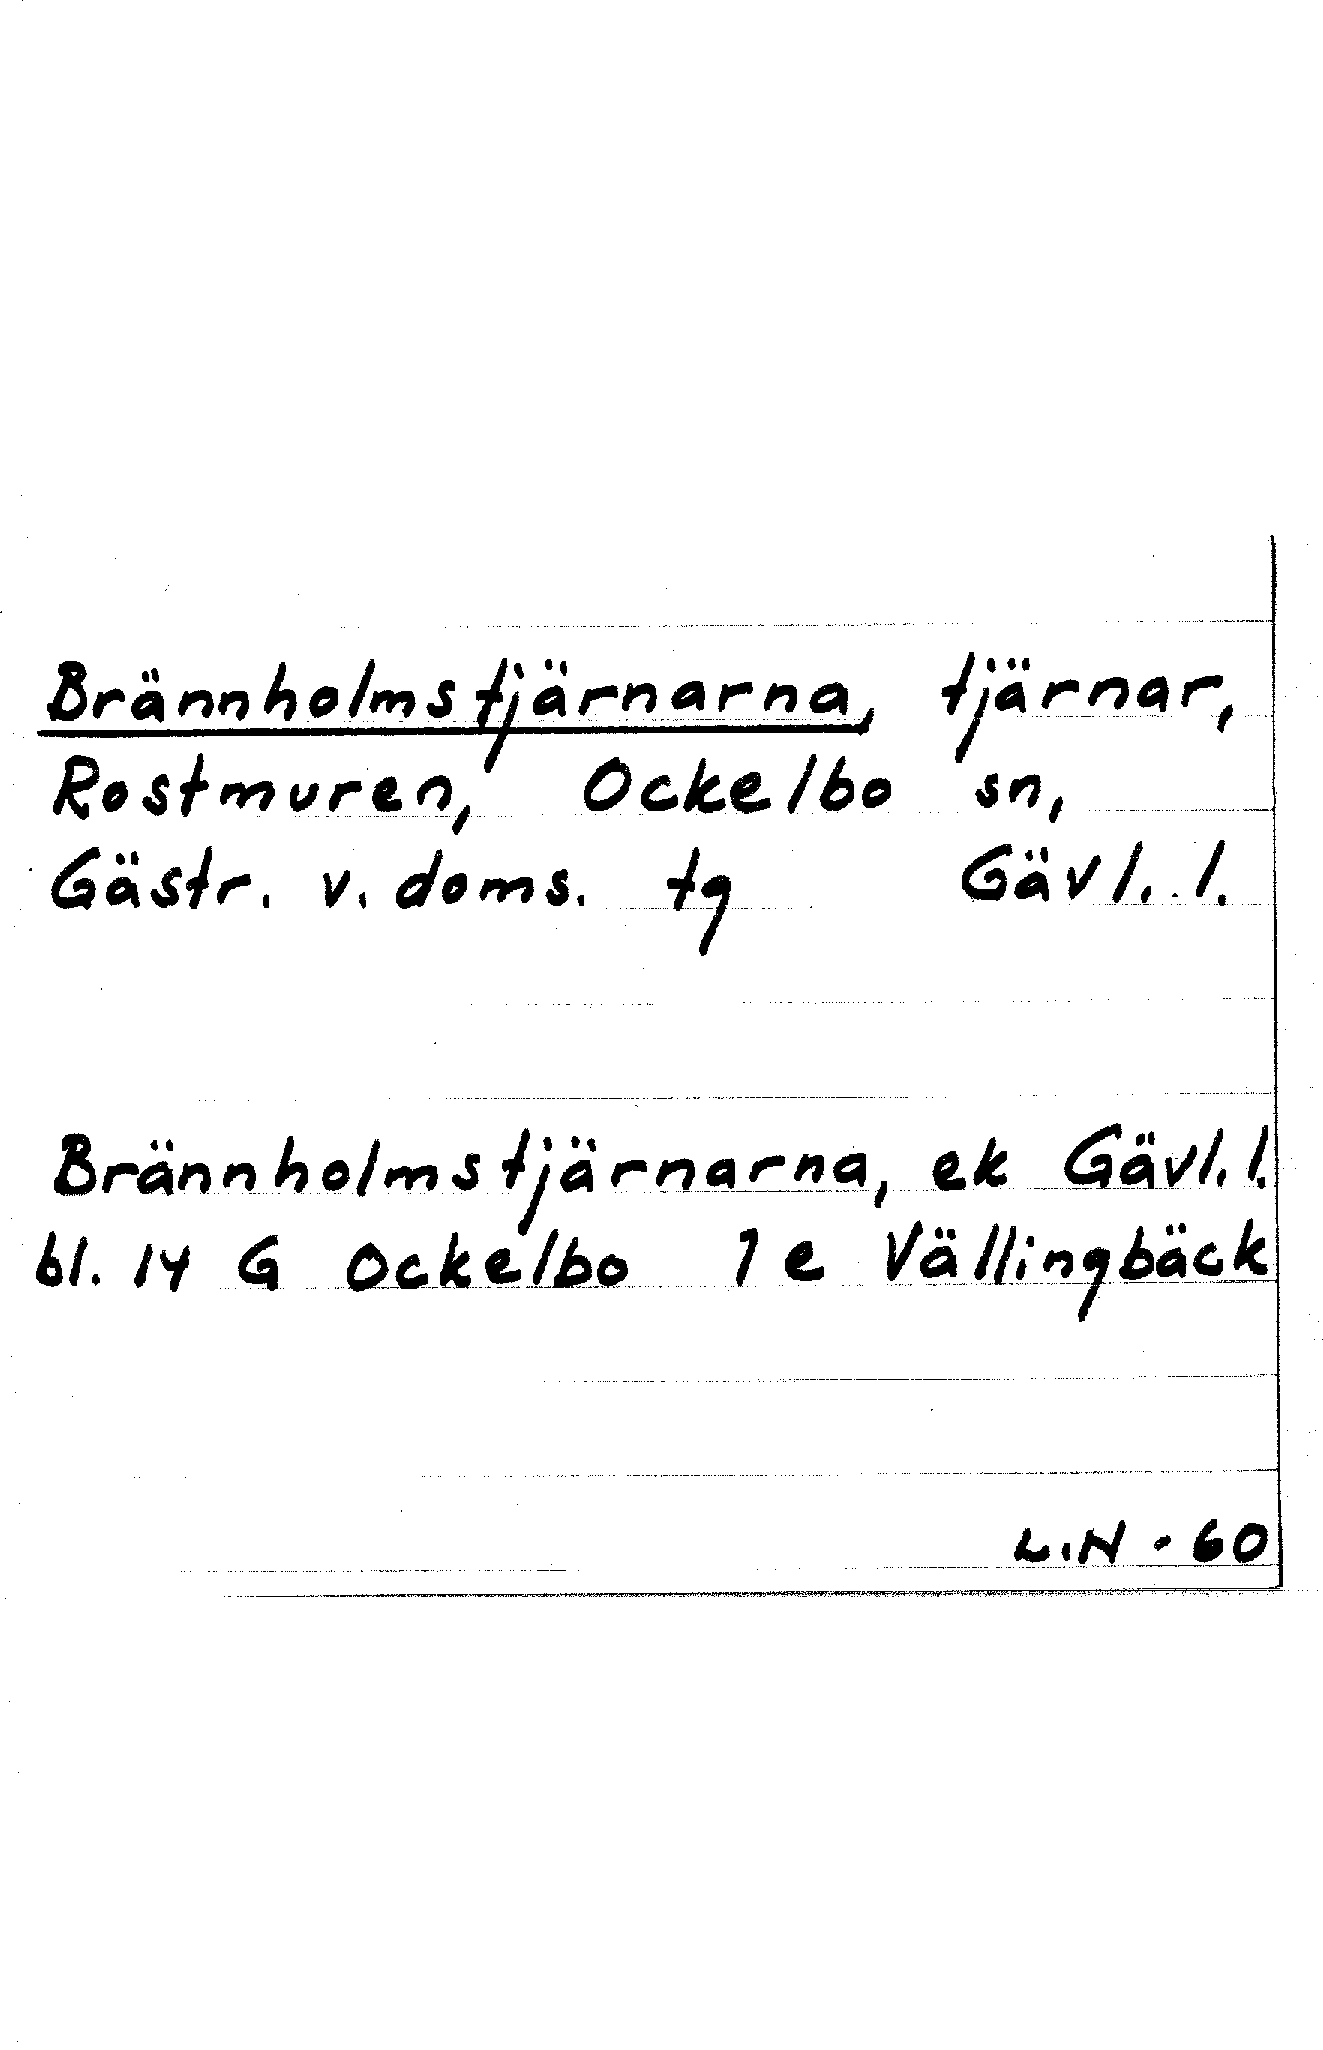 Brännholmstjärnarna, tjärnar,
Rostmuren, Ockelbo sn,
Gästr. v. doms. tg Gävl. l.
Brännholmstjärnarna, ek Gävl. l.
bl. 14 G Ockelbo 1 e Vällingbäck
L.N - 60